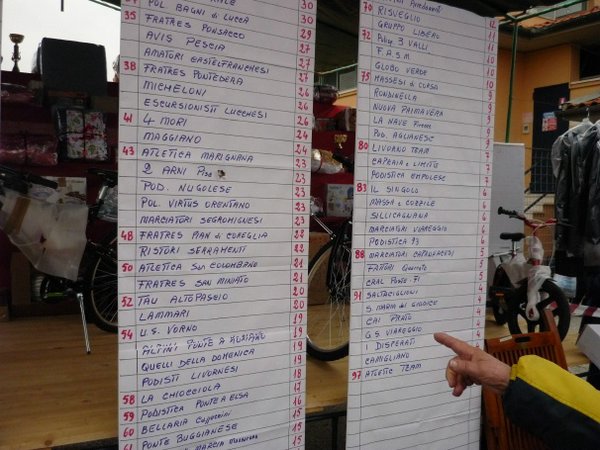 POL BAGNI di LUCCA 30
35 FRATRES PONSACCO 29
AVIS PESCIA 27
AMATORI CASTELFRANCHESI 27
38 FRATRES PONTEDERA 27
MICHELONI 26
ESCURSIONISTI LUCCHESI 26
41 4 MORI 26
MAGGIANO 24
43 ATLETICA MARIGNANA 24
2 ARNI Pisa 23
POD. NUGOLESE 23
POL. VIRTUS ORENTANO 23
MARCIATORI SEGROMIGNESI 23
48 FRATRES PIAN di COREGLIA 22
RISTORI SERRAMENTI 22
50 ATLETICA SAN COLOMBANO 21
FRATRES SAN MINIATO 21
52 TAU ALTOPASCIO 20
LAMMARI 20
54 U.S. VORNO 19
ALPINI PONTE A MORIANO 19
QUELLI DELLA DOMENICA 19
PODISTI LIVORNESI 18
58 LA CHIOCCIOLA 17
59 PODISTICA PONTE A ELSA 16
60 BELLARIA 15
PONTE BUGGIANESE 15
61
70 RISVEGLIO
GRUPPO LIBERO 11
POLISP. 3 VALLI 11
F.A.S.M 10
GLOBO VERDE 10
75 MASSESI di CORSA 10
RONDINELLA
NUOVA PRIMAVERA 9
LA NAVE 9
POD. AGLIANESE
80 LIVORNO TEAM 7
CAPRAIA e LIMITE 7
PODISTICA EMPOLESE 7
83 IL SINGOLO 6
MASSA e COZZILE 6
SILLICAGNANA 6
MARCIATORI VIAREGGIO 6
PODISTICA 93 6
88 MARCIATORI CAPANNORESI 5
FATTORI 5
CRAL PONTE FI 5
91 SALTACIGLIONI 4
S. MARIA del GIUDICE 4
CAI PRATO 4
G.S. VIAREGGIO 4
I DISPERATI 4
CAMIGLIANO
97 ATLETIC TEAM